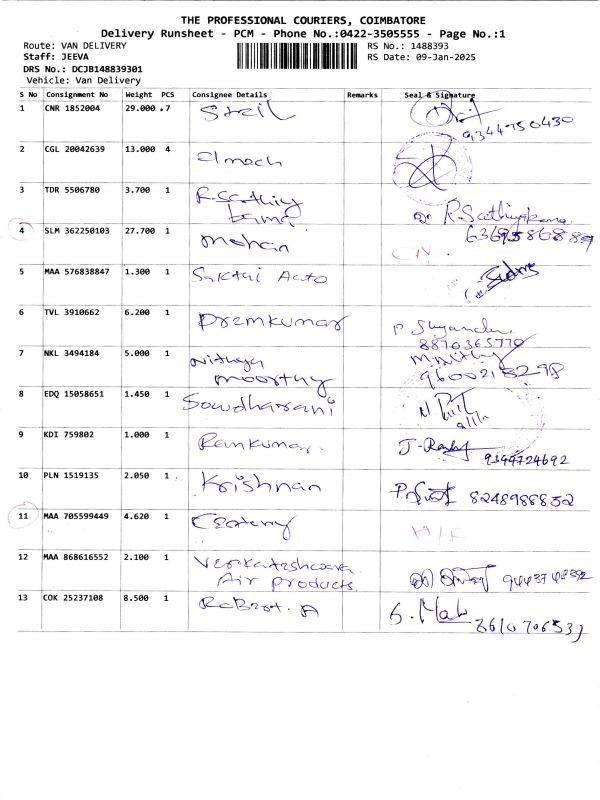 THE PROFESSIONAL COURIERS, COIMBATORE
Delivery Runsheet - PCM - Phone No.:0422-3505555 - Page No.:1
Route: VAN DELIVERY
RS No.: 1488393
Staff: JEEVA
RS Date: 09-Jan-2025
DRS No.: DCJB148839301
Vehicle: Van Delivery
S No Consignment No Weight PCS Consignee Details Remarks Seal & Signature
1 CNR 1852004 29.000 .7 Steil
9344750430
2 CGL 20042639 13.000 4 elmech
3 TDR 5506780 3.700 1 R.Sathiy
bama R.Sathiyabama
4 SLM 362250103 27.700 1 mohan
5 MAA 576838847 1.300 1 Sakthi Auto
6 TVL 3910662 6.200 1 Premkumar
8870365770
7 NKL 3494184 5.000 1 Nithya
moorthy 9600213298
8 EDQ 15058651 1.450 1 Sowdharani
9 KDI 759802 1.000 1 Ramkumar. 9344724692
10 PLN 1519135 2.050 1 Krishnan 8248988852
11 MAA 705599449 4.620 1
12 MAA 868616552 2.100 1 Venkateshwara
Air products
13 COK 25237108 8.500 1 Robert. A